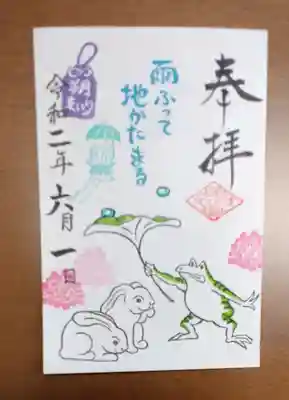 奉拝
雨ふって
地かたまる
令和二年六月一日